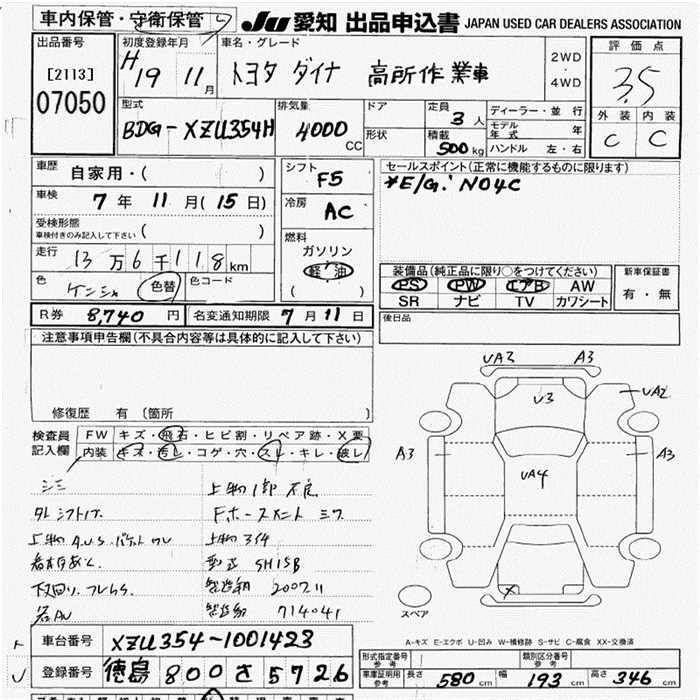 車内保管・守衛保管
JU 愛知 出品申込書 JAPAN USED CAR DEALERS ASSOCIATION
出品番号
[2113]
07050
初度登録年月
H 19 11 月
車名・グレード
トヨタ ダイナ 高所作業車
2WD
・
4WD
評価点
3.5
外装 内装
C C
型式
BDG-XZU354H
排気量
4000 CC
ドア
形状
定員
3 人
積載
500 kg
ディーラー・並行
モデル年式 年
ハンドル 左・右
車歴
自家用・( )
車検
7 年 11 月 ( 15 日)
受検形態
車検付きのみ記入して下さい ( )
走行
13 万 6 千 118 km
色
ケンシャ 色替 色コード
シフト
F5
冷房
AC
燃料
ガソリン
軽油
( )
セールスポイント(正常に機能するものに限ります)
*E/G: N04C
装備品(純正品に限り○をつけてください)
PS PW エアB AW
SR ナビ TV カワシート
新車保証書
有・無
R券 8,740 円 名変通知期限 7月11日
後日品
注意事項申告欄(不具合内容等は具体的に記入して下さい)
修復歴 有 (箇所 )
検査員
記入欄
FW キズ・飛石・ヒビ割・リペア跡・X要
内装 キズ・汚し・コゲ・穴・スレ・キレ・破レ
上物1部不良
上物 A.U.S バケット ワレ
上物 ヨイ4
型式 SH15B
下回り
製造 2007.11
714041
UA2 A3
U3
UA2
A3
A3
UA4
X
スペア
A-キズ E-エクボ U-凹み W-補修跡 S-サビ C-腐食 XX-交換済
車台番号 XZU354-1001423
登録番号 徳島 800 さ 5726
形式指定番号
参考
類別区分番号
参考
車庫証明用
参考
長さ 580 cm 幅 193 cm 高さ 346 cm